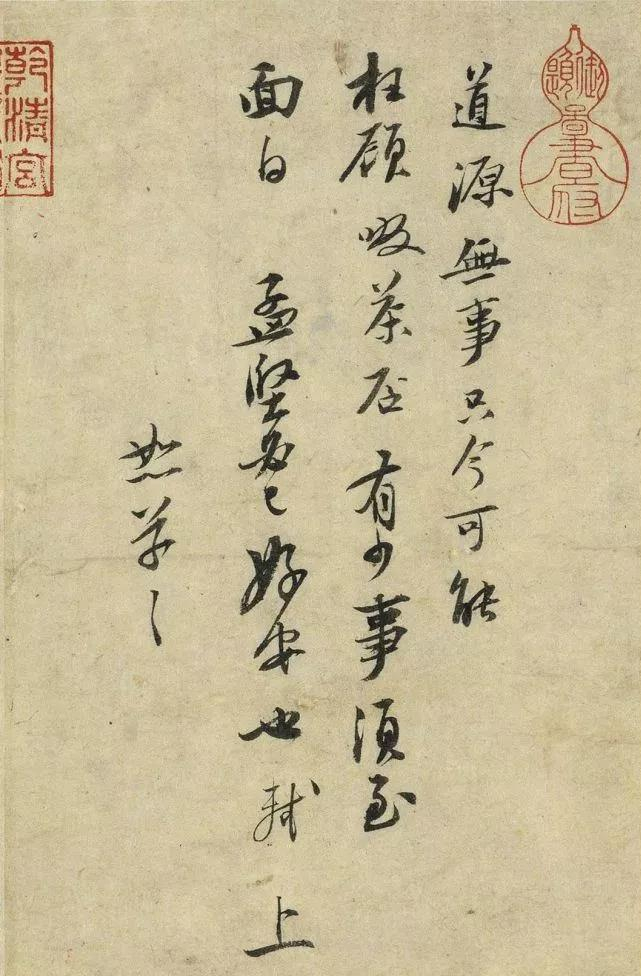 道源無事只今可能
枉顧啜茶否有少事須至
面白 孟堅必已好安也 軾 上
恕草〻
乾清宮